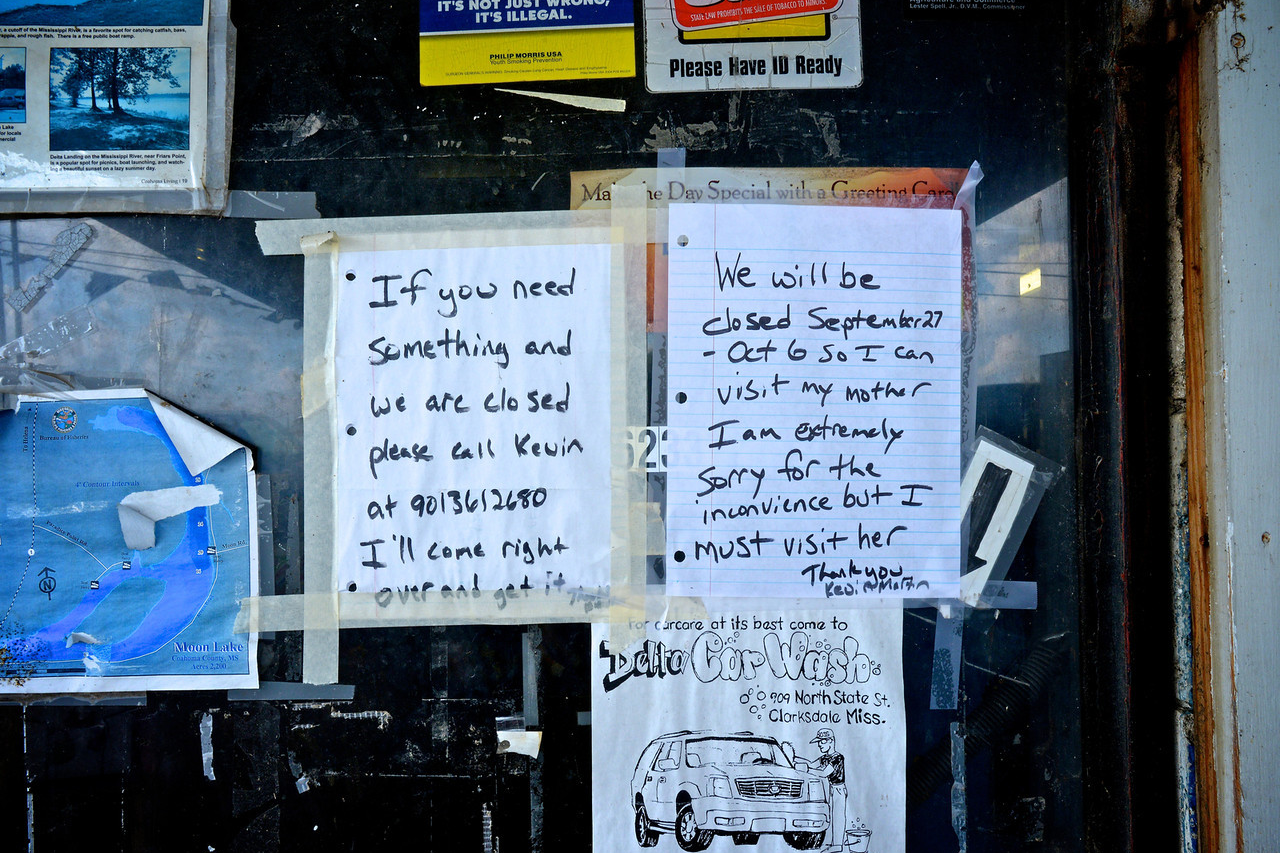 a cutoff of the Mississippi River, is a favorite spot for catching catfish, bass,
and rough fish. There is a free public boat ramp.
Lake
for locals
Delta Landing on the Mississippi River, near Friars Point,
is a popular spot for picnics, boat launching, and watch-
ing a beautiful sunset on a lazy summer day.
Coahoma Living | 19
IT'S NOT JUST WRONG,
IT'S ILLEGAL.
PHILIP MORRIS USA
Youth Smoking Prevention
STATE LAW PROHIBITS THE SALE OF TOBACCO TO MINORS
Please Have ID Ready
Lester Spell, Jr., D.V.M., Commissioner
Day Special with a Greeting Card
If you need
something and
we are closed
please call Kevin
at 9013612680
I'll come right
over and get it
We will be
closed September 27
- Oct 6 so I can
visit my mother
I am extremely
sorry for the
inconvience but I
must visit her
Thank you
Kevin
623
Bureau of Fisheries
4' Contour Intervals
N
Moon Lake
Coahoma County, MS
Acres 2,200
For carcare at its best come to
Delta Car Wash
909 North State St.
Clarksdale Miss.